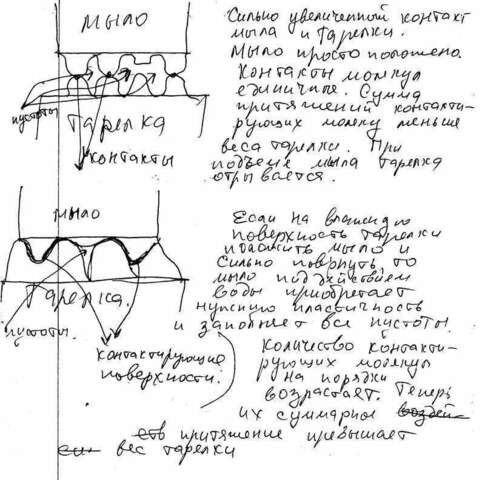 мыло
Сильно увеличенный контакт
мыла и тарелки.
Мыло просто положено.
Контакты молекул
единичные. Сумма
притяжений контакти-
рующих молекул меньше
веса тарелки. При
подъеме мыла тарелка
отрывается.
пустоты
Тарелка
контакты
мыло
Тарелка.
пустоты.
контактирующие
поверхности.
Если на влажную
поверхность тарелки
положить мыло и
сильно повернуть, то
мыло под действием
воды приобретает
нужную пластичность
и заполняет все пустоты.
Количество контакти-
рующих молекул
на порядки
возрастает. Теперь
их суммарное
притяжение превышает
вес тарелки